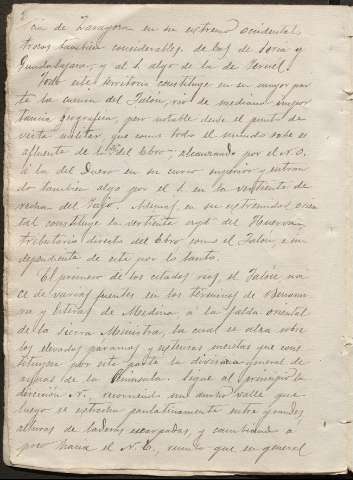 cia de Zaragoza en su extremo occidental,
trozos tambien considerables de las de Soria y
Guadalajara, y al S. algo de la de Teruel.
Todo este territorio constituye en su mayor par
te la cuenca del Jalón, rio de mediana impor
tancia geografica, pero notable desde el punto de
vista militar que como todo el mundo sabe es
afluente de del Ebro, alcanzando por el N.O.
á la del Duero en su curso superior y entran
do tambien algo por el S. en la vertiente de
recha del Tajo. Ademas en su extremidad orien
tal constituye la vertiente del Huerva,
tributario directo del Ebro como el Jalón, é in
dependiente de este por lo tanto.
El primero de los citados rios, el Jalón na
ce de varias fuentes en los términos de Benami
ra y Esteras de Medina á la falda oriental
de la Sierra Ministra, la cual se alza sobre
los elevados páramos y mesetas que cons
tituyen por esta parte la divisoria general de
aguas de la Peninsula. Sigue al principio la
direccion N., recorriendo un ancho valle que
luego se estrecha paulatinamente entre grandes
alturas de laderas escarpadas, y cambiando á
poco hacia el N.E., rumbo que en general